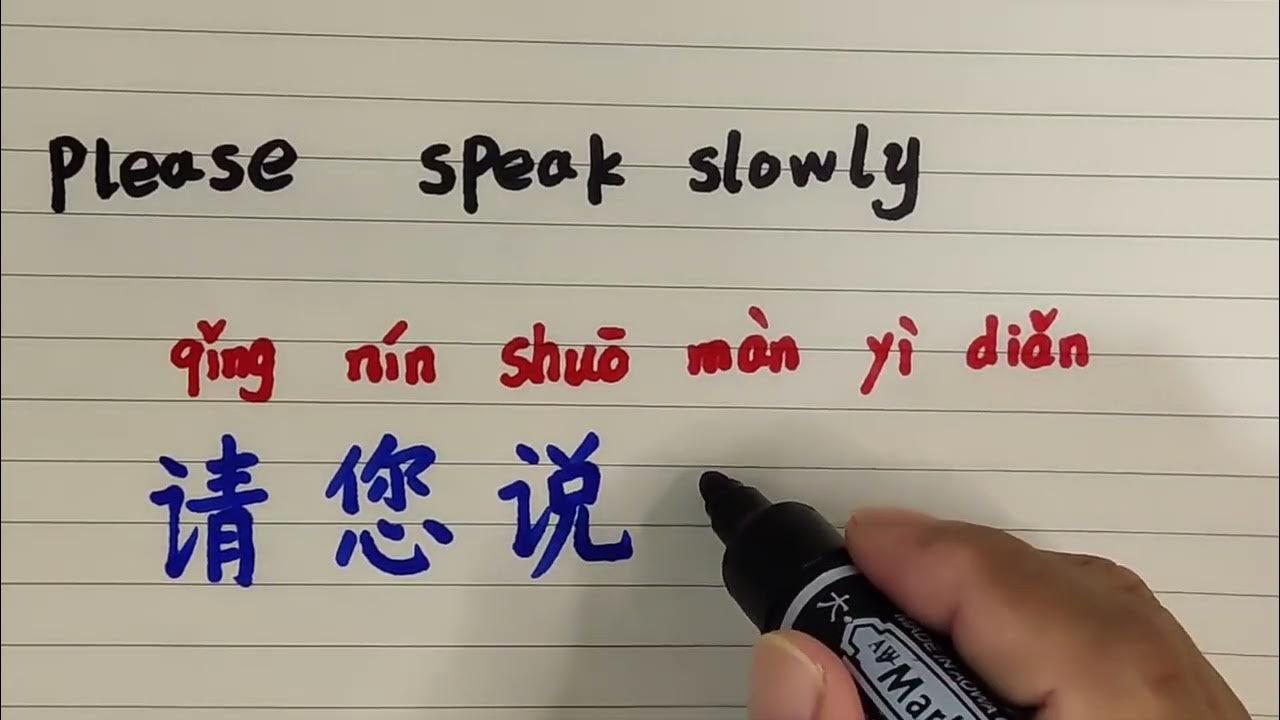 Please speak slowly
qǐng nín shuō màn yì diǎn
请您说
大
AW Mar
MADE IN